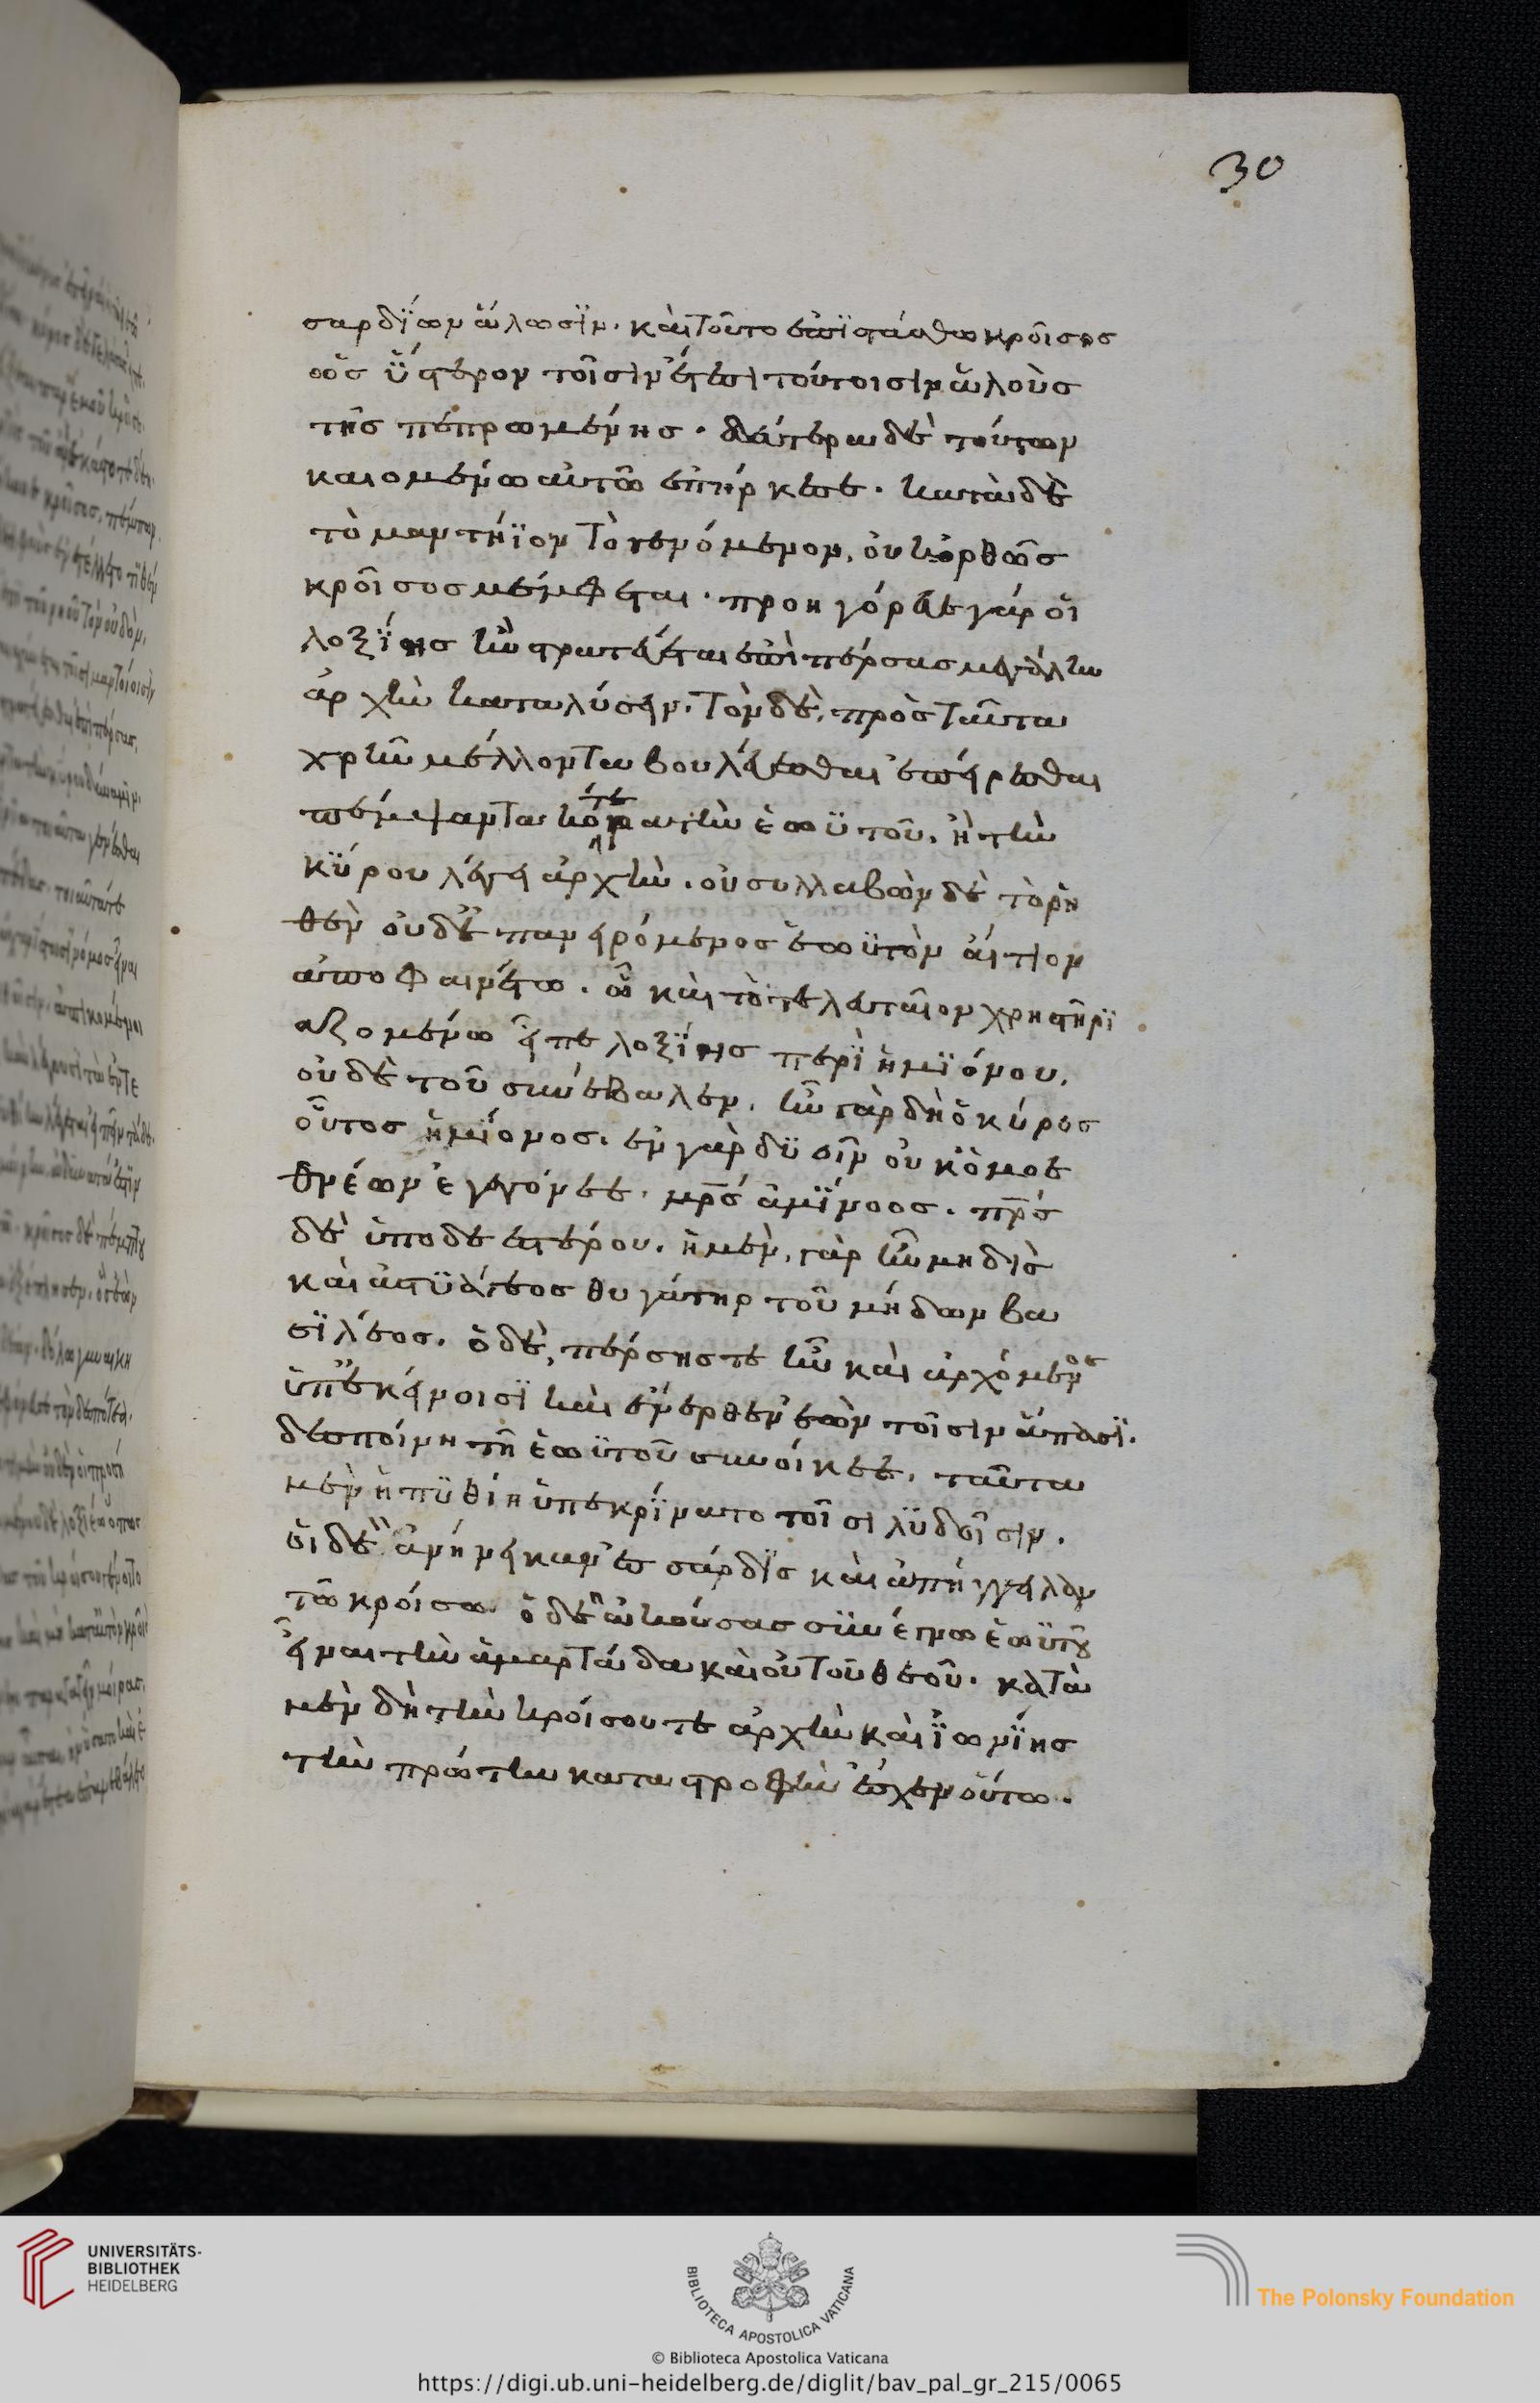 30
σαρδΐων ἅλωσϊν. καὶ τοῦτο ἐπϊστάσθω κροῖσος
ὡς ὕστερον τοῖσιν ἔτεσι τούτοισιν ἁλοὺς
τῆς πεπρωμένης. δεύτερα δὲ τούτων
καιομένω αὐτῶ ἐπήρκεσε. κατὰ δὲ
τὸ μαντήϊον τὸ γενόμενον, οὐκ ὀρθῶς
κροῖσος μέμφεται. προηγόρευε γάρ οἱ
λοξΐης ἢν στρατεύεται ἐπὶ πέρσας μεγάλην
ἀρχὴν καταλύσειν. τὸν δὲ, πρὸς ταῦτα
χρῆν μέλλοντα βουλεύεσθαι ἐπείρεσθαι
πέμψαντα κότερα τὴν ἑωϋτοῦ. ἢ τὴν
κΰρου λέγει ἀρχὴν. οὐ συλλαβὼν δὲ τὸ ρἡ
θὲν οὐδ' ἐπανειρόμενος ἑωϋτὸν αἴτιον
ἀποφαινέτω. ὧ καὶ τὸ τελευταῖον χρηστηρϊ
αζομένω εἶπε λοξΐης περὶ ἡμϊόνου.
οὐδὲ τοῦ συνέβαλεν. ἦν γὰρ δὴ ὁ κύρος
οὗτος ἡμΐονος. ἐν γὰρ δϋοῖν οὐκ ὁμοε
θνέων ἐγεγόνεε. μρ̅ς ἀμΐνοος. πρ̅ς
δὲ ὑποδεεστέρου. ἡ μὲν, γὰρ ἦν μηδὶς
καὶ ἀστϋάγεος θυγάτηρ τοῦ μήδων βα
σϊλέος. ὁ δὲ, πέρσης τε ἦν καὶ ἀρχόμενος
ὑπ' ἐκείνοισϊ καὶ ἔνερθεν ἐὼν τοῖσιν ἅπασϊ.
δεσποίνη τῆ ἑωϋτοῦ συνοίκεε. ταῦτα
μὲν ἡ πϋθίη ὑπεκρΐνατο τοῖσι λϋδοῖσιν.
οἱ δὲ ἀνήνεικαν ἐς σάρδϊς καὶ ἀπήγγειλαν
τῶ κροίσω. ὁ δὲ ἀκούσας σϋνέγνω ἑωϋτοῦ
εἶναι τὴν ἁμαρτάδα καὶ οὐ τοῦ θεοῦ. κατὰ
μὲν δὴ τὴν κροίσου τε ἀρχὴν καὶ ϊωνΐης
τὴν πρώτην καταστροφὴν ἔσχεν οὕτω.
UNIVERSITÄTS-
BIBLIOTHEK
HEIDELBERG
BIBLIOTECA APOSTOLICA VATICANA
The Polonsky Foundation
© Biblioteca Apostolica Vaticana
https://digi.ub.uni-heidelberg.de/diglit/bav_pal_gr_215/0065